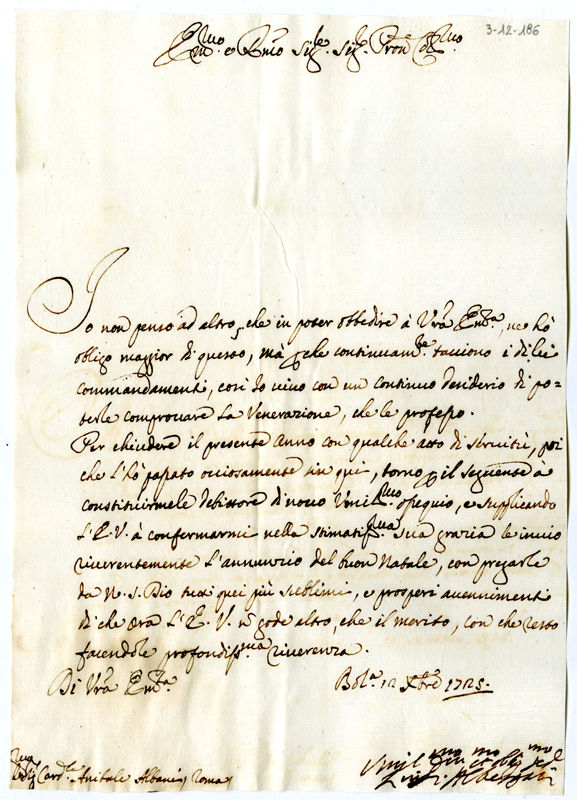 3-12-186
Em.mo e Rmo Sig.e Sig.e Pron Col.mo
Io non penso ad altro, che in poter obbedire à Vrā Em.za, ne hò
obligo maggior di questo, mà p che continuam.te tacciono i di lei
commandamenti, così Io vivo con un continuo desiderio di po-
terle comprovare La Venerazione, che le professo.
Per chiudere il presente Anno con qualche atto di servitù, poi
che l'hò passato ociosamente sin qui, torno p il seguente à
constituirmele debittore di novo Umil.mo ossequio, e supplicando
L'E.V. à confermarmi nella stimatiss.ma sua grazia le invio
riverentemente L'annunzio del buon Natale, con pregarle
da N. S. Dio tutti quei più sublimi, e prosperi avvenimenti
di che ora L'E.V. n gode altro, che il merito, con che resto
facendole profondiss.ma riverenza.
Di Vrā Em.za
Bol.a 12 Xbre 1725.
Sig. Card.le Anibale Albani Roma
Umil.mo et oblig.mo